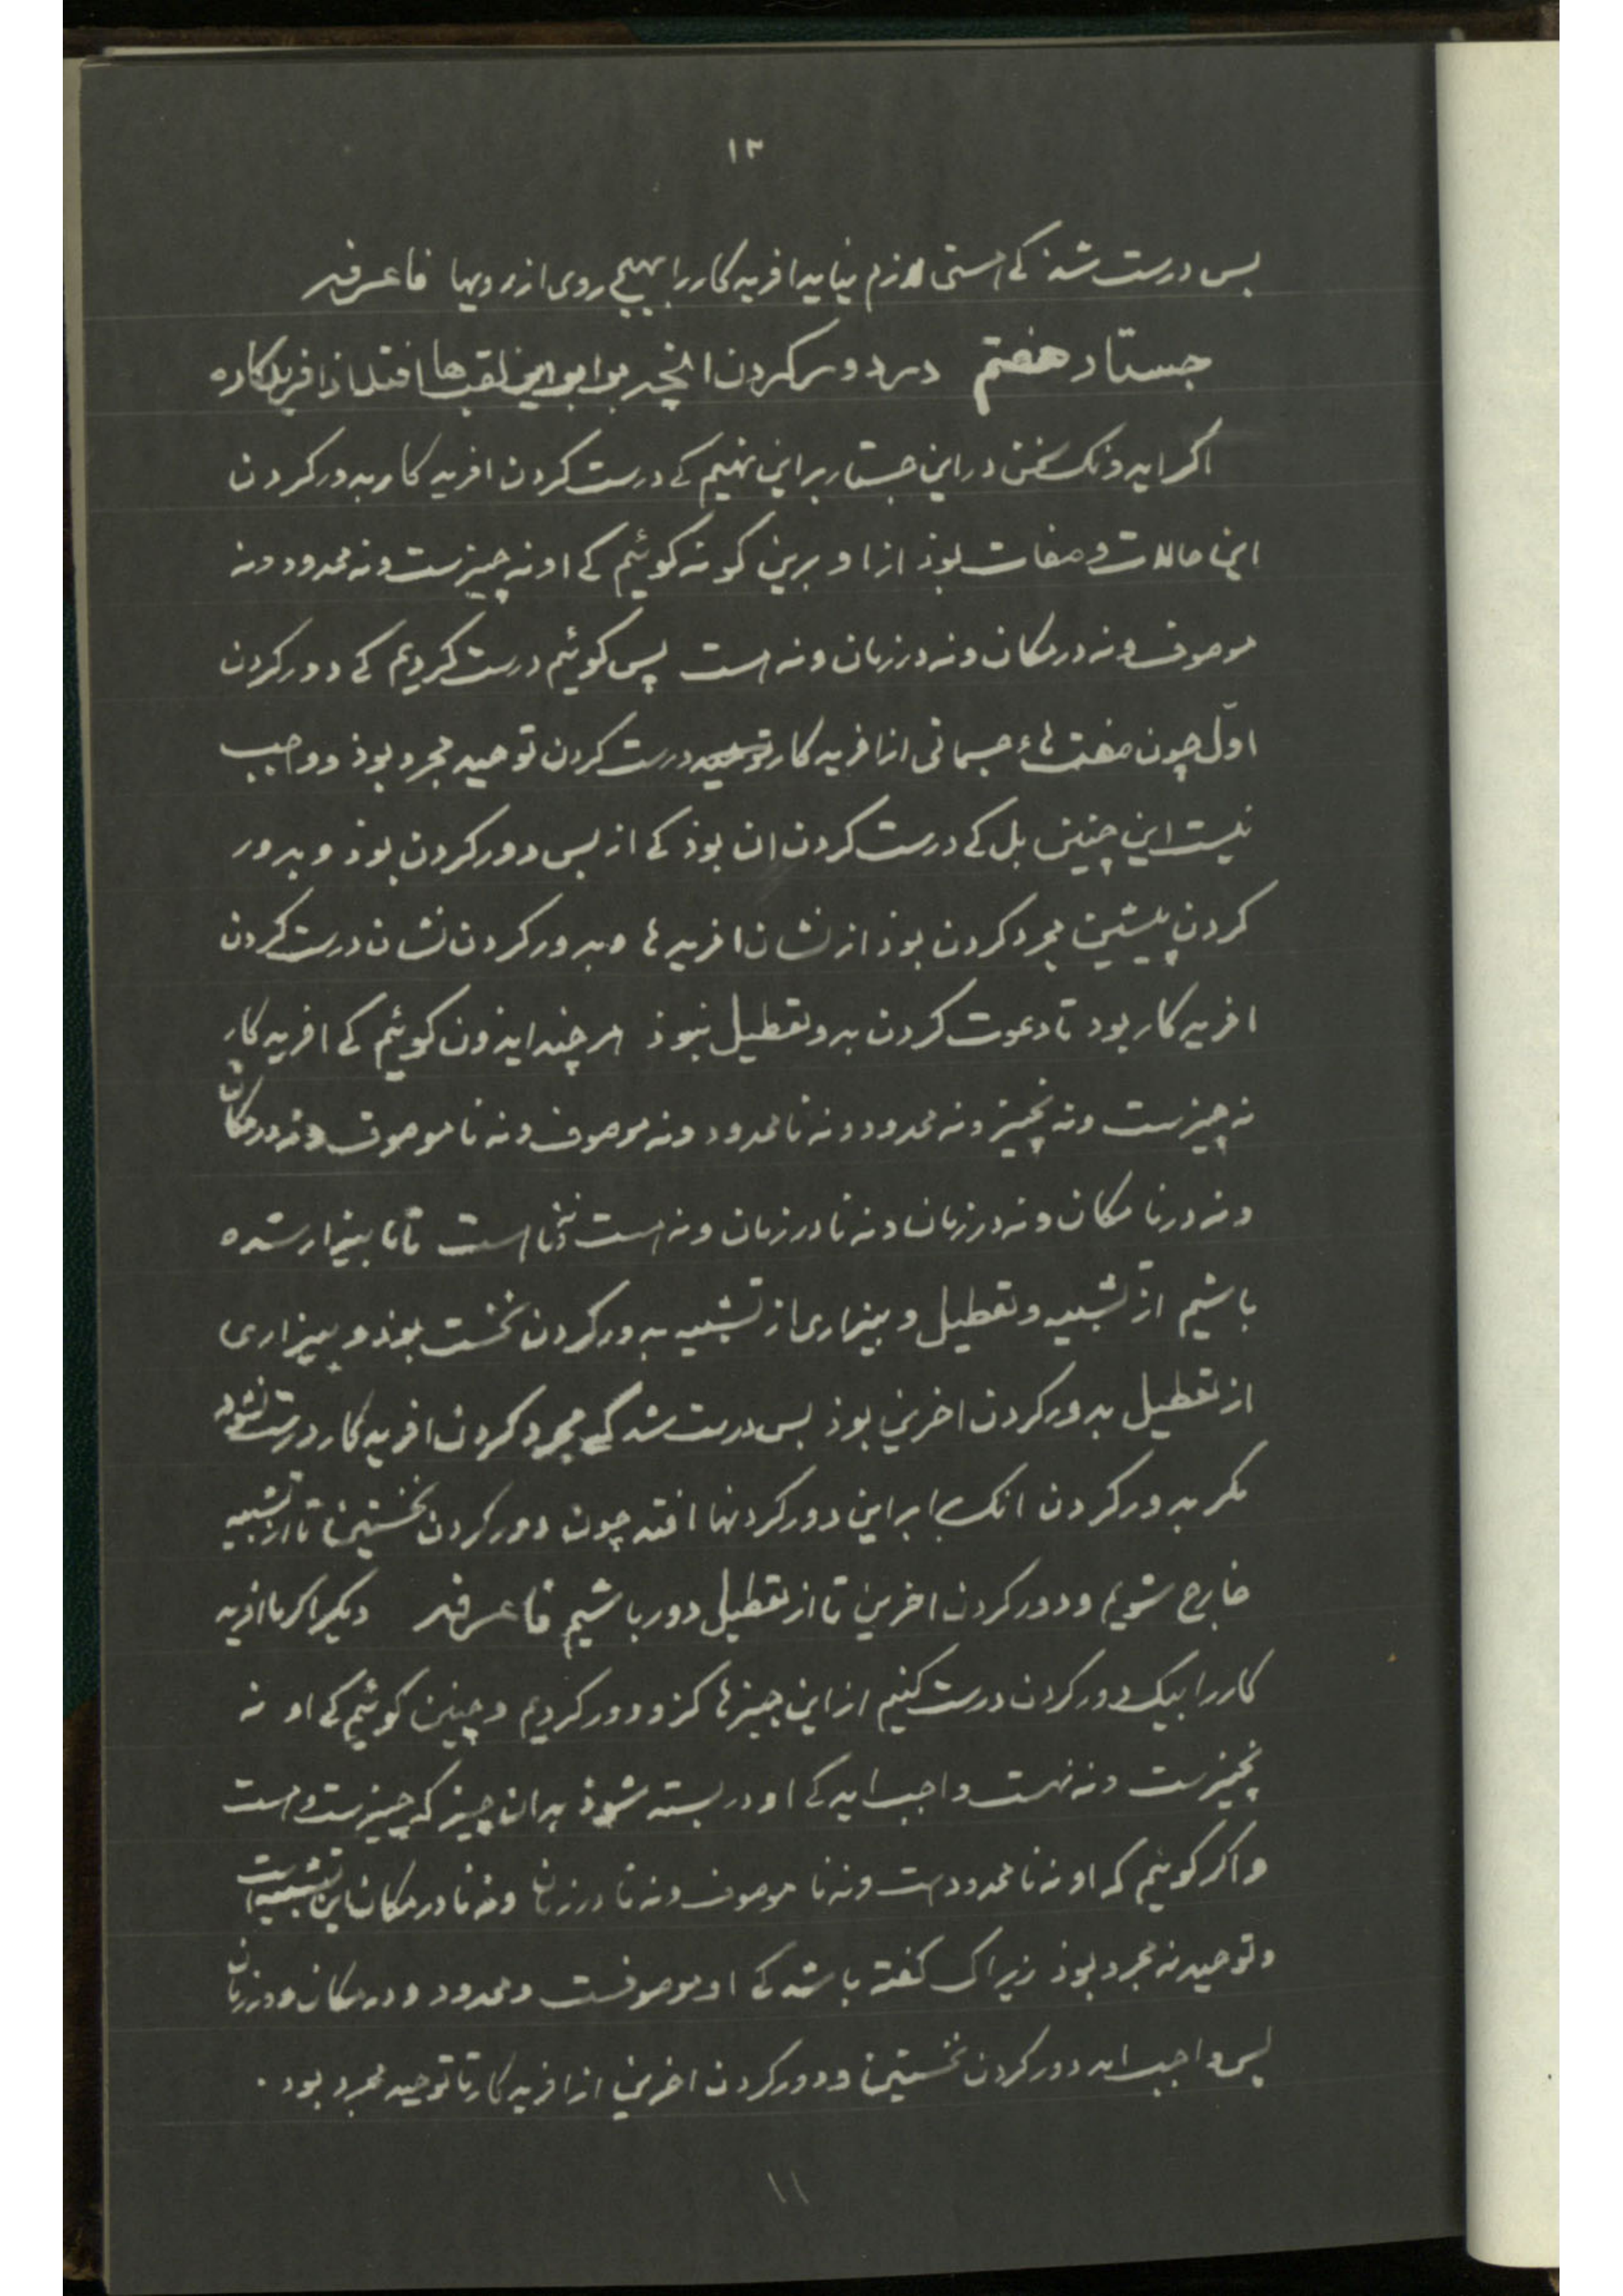 ۱۳
بس درست شد کی هستی لازم نیاید افریدکار را بهیچ روی از رویها فاعرفه
جستار هفتم در دور کردن انچ برابر این لقب ها افتد از افریدکار
اکر ایدونک سخن در این جستار بر این نهیم کی درست کردن افریدکار بدور کردن
این حالات و صفات بوذ ازاو برین کونه کوئیم کی او نه چیزست و نه محدود و نه
موصوف و نه در مکان و نه در زمان و نه هست پس کوئیم درست کردیم کی دور کردن
اوّل چون صفت هاء جسمانی از افریدکار درست کردن توحید مجرد بوذ و واجب
نیست این چنین بل کی درست کردن ان بوذ کی از بس دور کردن بوذ و بدور
کردن پیشین مجرد کردن بوذ از نشان افریدها و بدور کردن نشان درست کردن
افریدکار بود تا دعوت کردن بدو تعطیل نبوذ هر چند ایذون کوئیم کی افریدکار
نه چیزست و نه نچیز و نه محدود و نه نا محدود و نه موصوف و نه نا موصوف و نه در مکان
و نه در نا مکان و نه در زمان و نه نا در زمان و نه هست و نه نا هست تا ما بیزار شده
باشیم از تشبیه و تعطیل و بیزاری از تشبیه بدور کردن نخست بوذ و بیزاری
از تعطیل بدور کردن اخرین بوذ بس درست شد کی مجرد کردن افریدکار درست نشود
مکر بدور کردن انک برابر این دور کردنها افتد چون دور کردن نخستین تا از تشبیه
خارج شویم و دور کردن اخرین تا از تعطیل دور باشیم فاعرفه دیکر اکر ما افرید
کار را بیک دور کردن درست کنیم از این چیزها کزو دور کردیم و چنین کوئیم کی او نه
نچیزست و نه نهست واجب اید کی او در بسته شوذ بدان چیز که چیزست و هست
و اکر کوئیم که او نه نا محدودست و نه نا موصوف و نه نا در زمان و نه نا در مکان این تشبیه است
و توحید نه مجرد بوذ زیراک کفته باشد کی او موصوفست و محدود و در مکان و در زمان
پس واجب اید دور کردن نخستین و دور کردن اخرین از افریدکار تا توحید مجرد بود .
۱۱